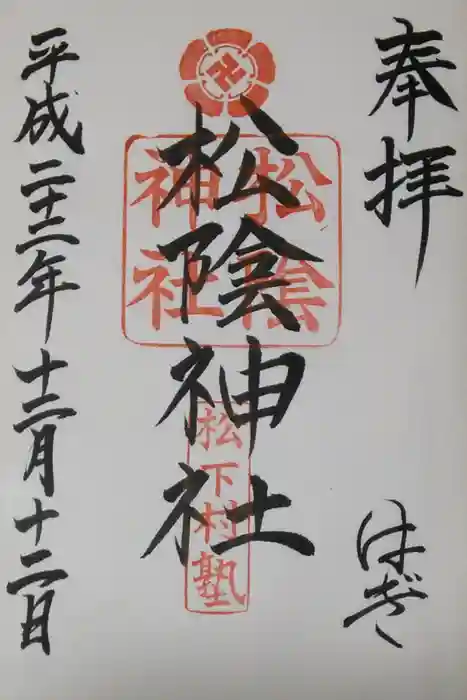 奉拝
はぎ
松陰神社
松陰神社
松下村塾
平成二十二年十二月十二日